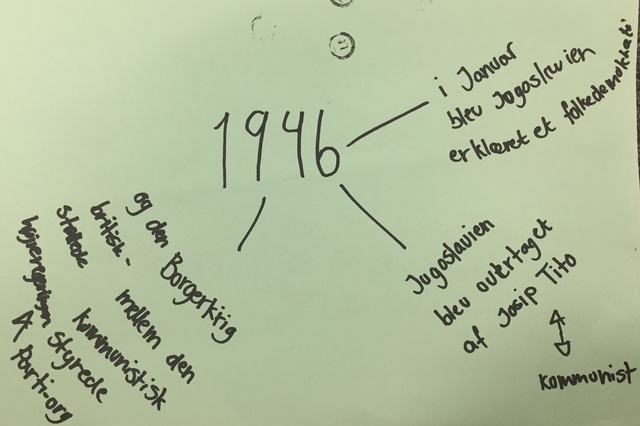 1946
i Januar
blev Jogoslavien
erklæret et folkedemokrati
Jugoslavien
blev overtaget
af Josip Tito
kommunist
Borgerkrig
mellem den
kommunistisk
styrede
parti-org
og den
britisk-
støttede